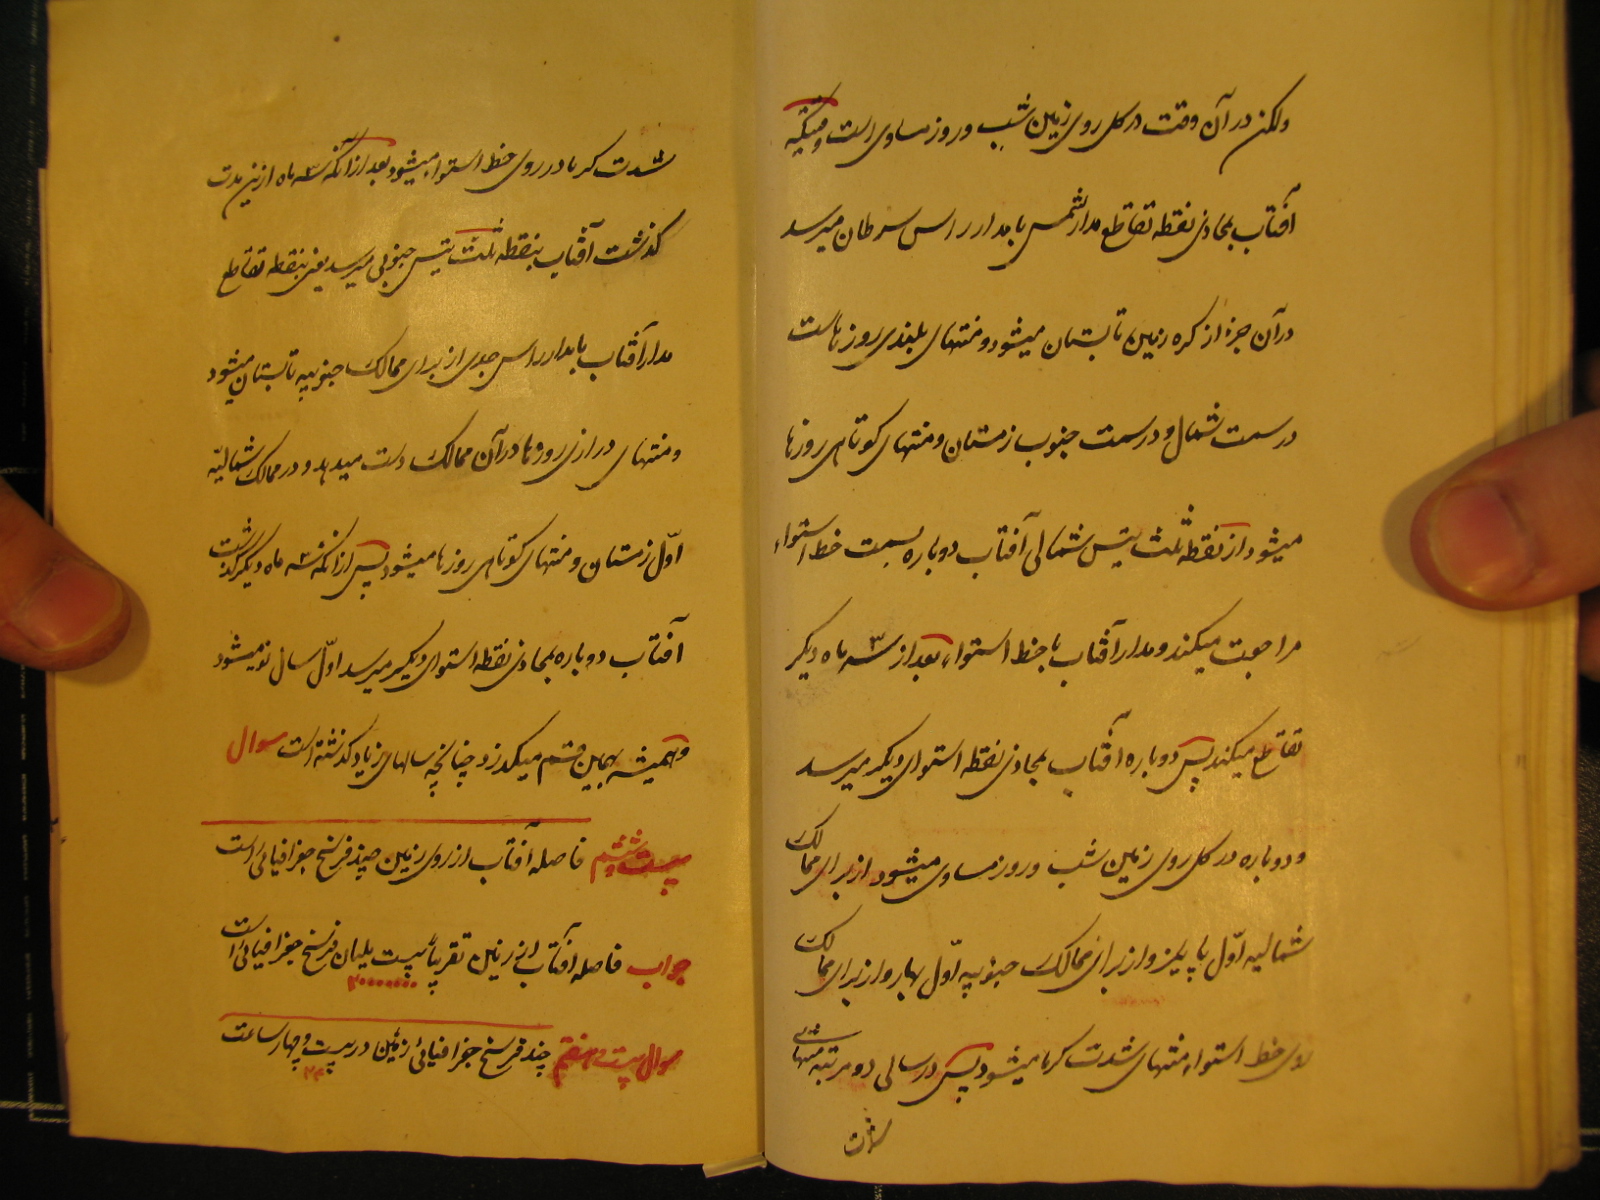 ولکن در آن وقت در کل روی زمین شب و روز مساوی است وقتیکه
آفتاب بمحاذی نقطه تقاطع مدار شمس با مدار راس سرطان میرسد
در آن جزء از کره زمین تابستان میشود و منتهای بلندی روزهاست
در سمت شمال و در سمت جنوب زمستان و منتهای کوتاهی روزها
میشود از نقطه ثلث یتس شمالی آفتاب دوباره بسمت خط استواء
مراجعت میکند و مدار آفتاب با خط استواء بعد از سه ۳ ماه دیگر
تقاطع میکند پس دوباره آفتاب بمحاذی نقطه استوای دیگر میرسد
و دوباره در کل روی زمین شب و روز مساوی میشود از برای ممالک
شمالیه اوّل پاییز و از برای ممالک جنوبیه اوّل بهار و از برای ممالک
روی خط استواء منتهای شدت گرما میشود پس در سالی دو مرتبه منتهای
شدت
شدت گرما در روی خط استواء میشود بعد از آنکه سه ۳ ماه ازین مدت
گذشت آفتاب بنقطه ثلث یتس جنوبی میرسد یعنی بنقطه تقاطع
مدار آفتاب با مدار راس جدی از برای ممالک جنوبیه تابستان میشود
و منتهای درازی روزها در آن ممالک دست میدهد و در ممالک شمالیّه
اوّل زمستان و منتهای کوتاهی روزها میشود پس از آنکه سه ۳ ماه دیگر گذشت
آفتاب دوباره بمحاذی نقطه استوای دیگر میرسد اوّل سال نو میشود
و همیشه بهمین قسم میگذرد چنانچه سالهای زیاد گذشته است سوال
بیست و ششم فاصله آفتاب از روی زمین چند فرسخ جغرافیائی است
جواب فاصله آفتاب از زمین تقریباً بیست یلیان فرسخ جغرافیائی است
۲۰۰۰۰۰۰۰
سوال بیست و هفتم چند فرسخ جغرافیائی زمین در بیست و چهار ساعت
۲۴